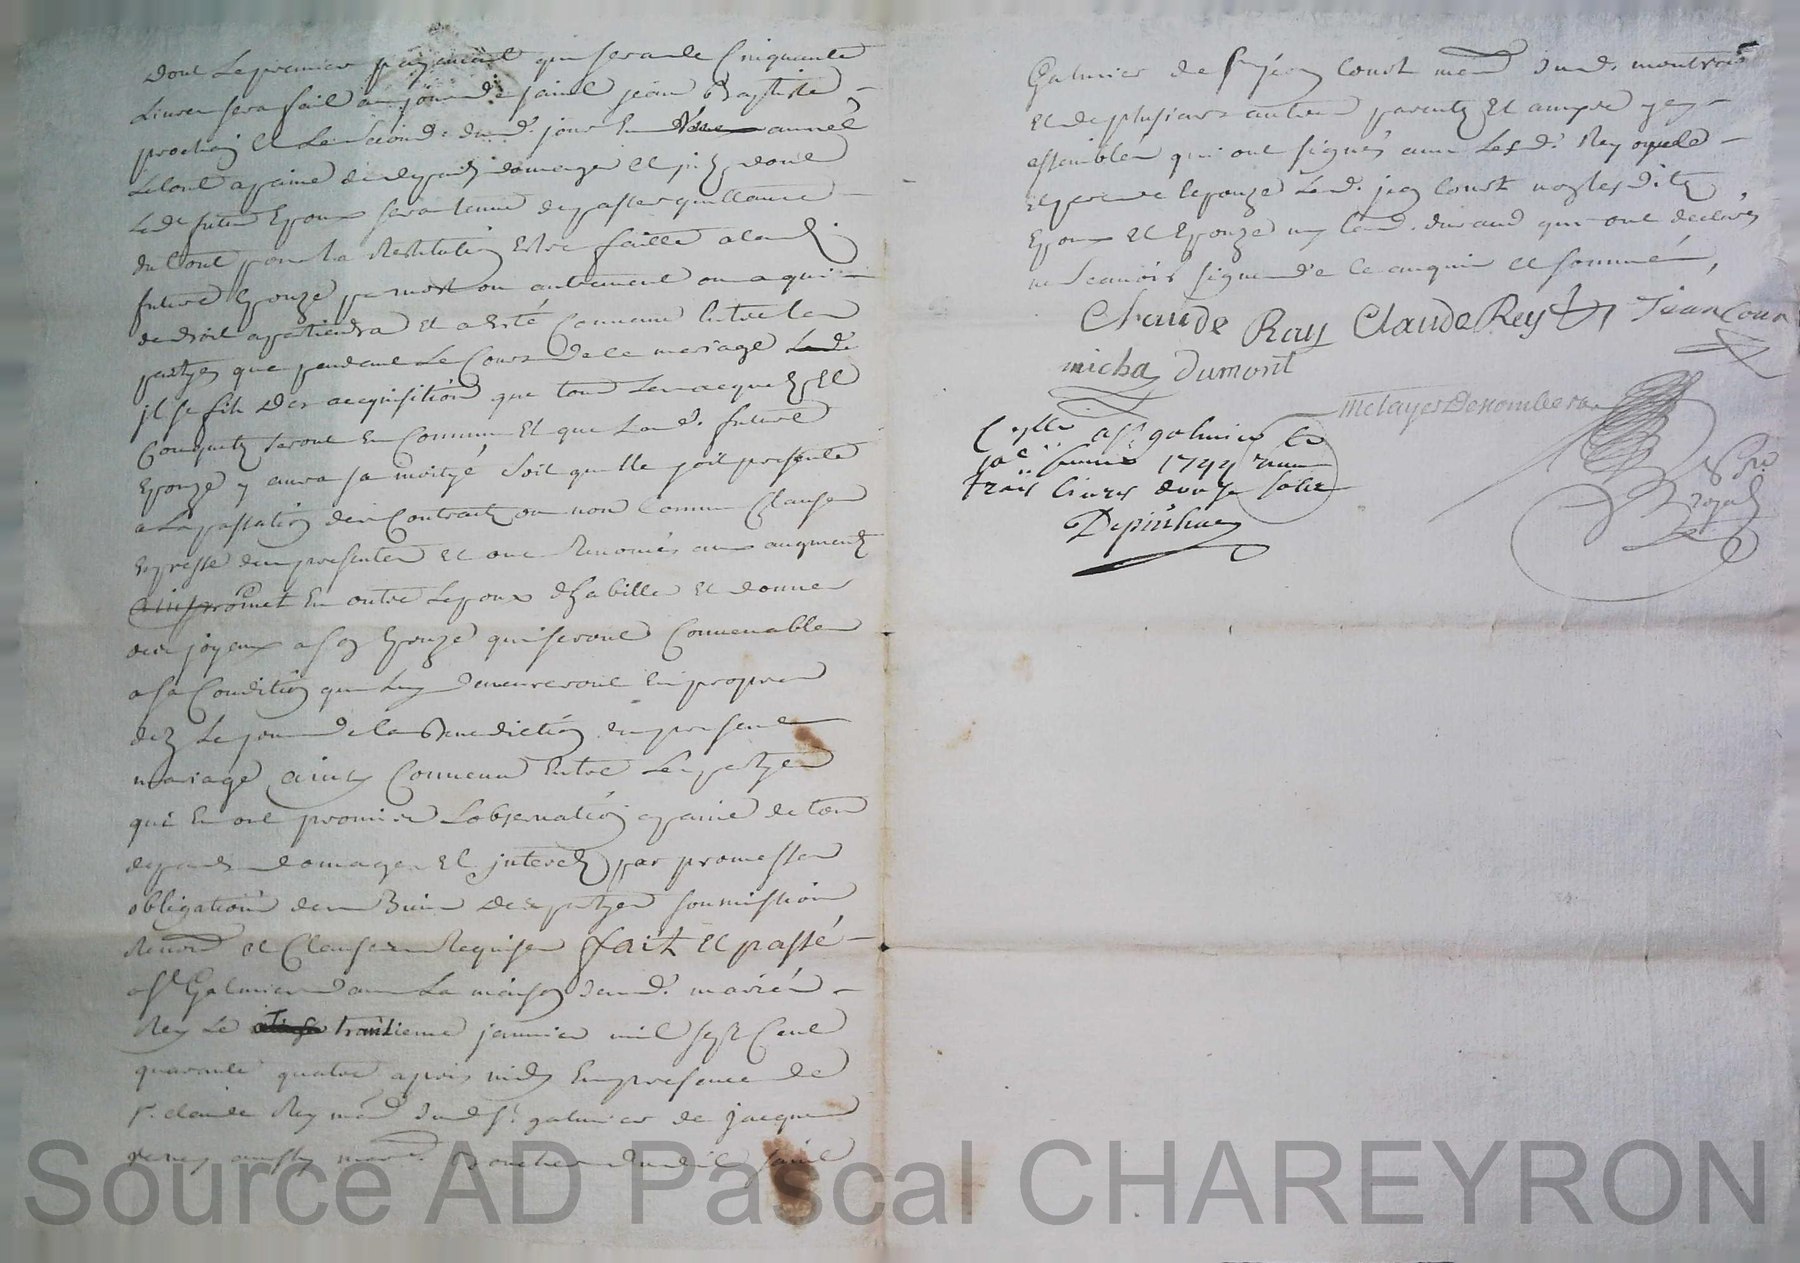 Dont le premier payement qui sera de Cinquante
Livres sera fait au jour de saint jean Baptiste
prochain et le second dud. jour en une année
Le tout a paine de depends domages et
Led. futur Epoux sera tenu de passer quittance
du tout pour la Restitution Estre faitte a lad.
future Epouze par mort ou autrement ou a qui
de droit apartiendra Et a Esté Convenu Entre les
partyes que pendant Le Cours de ce mariage
il se fit des acquisitions que tous Les acquets Et
Conquets seront En Commun Et que Lad. future
Epouze y aura sa moityé soit quelle soit presente
a La passation des Contracts ou non Comme Clause
Expresse des presentes Et ont Renoncés aux augments
promet En outre Lepoux dhabiller Et donner
des joyeux a son Epouze qui seront Convenables
a sa Condition que Luy demeureront En propres
dez Le jour de la Benediction du present
mariage ainsy Convenu Entre Les partyes
qui En ont promis Lobservation a paine de tous
depends domages Et interets par promesses
obligations des Biens des partyes soumissions
Renon. et Clauses Requises fait et passé
a St Galmier dans La maison dud. mariés
Rey Le trantieme janvier mil sept Cent
quarante quatre apres midy En presence de
Sr. claude Rey md dud St. galmier de jacques
Rey aussy md boucher dudit saint
Galmier de sr jean Court md dud. montron
et de plusieurs autres parents Et amys
assemblés qui ont signés avec Lesd. Rey oncle
et pere de lepouze Led. jean Court non lesdits
Epoux Et Epouze ny Lad. durand qui ont declarés
ne scavoir signer de ce enquis et sommés,
Claude Ray Claude Rey Jean Cour
micha Dumont
Metayer Desombera
a St galmier le
1744 reçu
trois livres douze sols
Depinhac
Nore
Royal
Source AD Pascal CHAREYRON